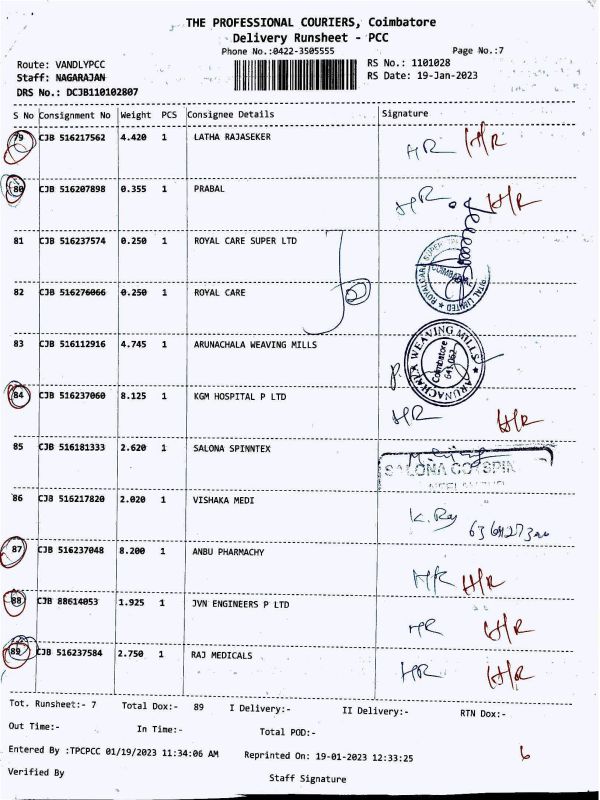 THE PROFESSIONAL COURIERS, Coimbatore
Delivery Runsheet - PCC
Phone No.:0422-3505555
Page No.:7
Route: VANDLYPCC
RS No.: 1101028
Staff: NAGARAJAN
RS Date: 19-Jan-2023
DRS No.: DCJB110102807
S No Consignment No Weight PCS Consignee Details Signature
79 CJB 516217562 4.420 1 LATHA RAJASEKER HR H/R
80 CJB 516207898 0.355 1 PRABAL HR H/R
81 CJB 516237574 0.250 1 ROYAL CARE SUPER LTD
82 CJB 516276066 0.250 1 ROYAL CARE
83 CJB 516112916 4.745 1 ARUNACHALA WEAVING MILLS
ARUNACHALA WEAVING MILLS
Coimbatore
641 062
84 CJB 516237060 8.125 1 KGM HOSPITAL P LTD HR H/R
85 CJB 516181333 2.620 1 SALONA SPINNTEX
SALONA COTSPIN
86 CJB 516217820 2.020 1 VISHAKA MEDI K. Raj
87 CJB 516237048 8.200 1 ANBU PHARMACHY HR H/R
88 CJB 88614053 1.925 1 JVN ENGINEERS P LTD HR H/R
89 CJB 516237584 2.750 1 RAJ MEDICALS HR H/R
Tot. Runsheet:- 7 Total Dox:- 89 I Delivery:- II Delivery:- RTN Dox:-
Out Time:- In Time:- Total POD:-
Entered By :TPCPCC 01/19/2023 11:34:06 AM Reprinted On: 19-01-2023 12:33:25 6
Verified By
Staff Signature